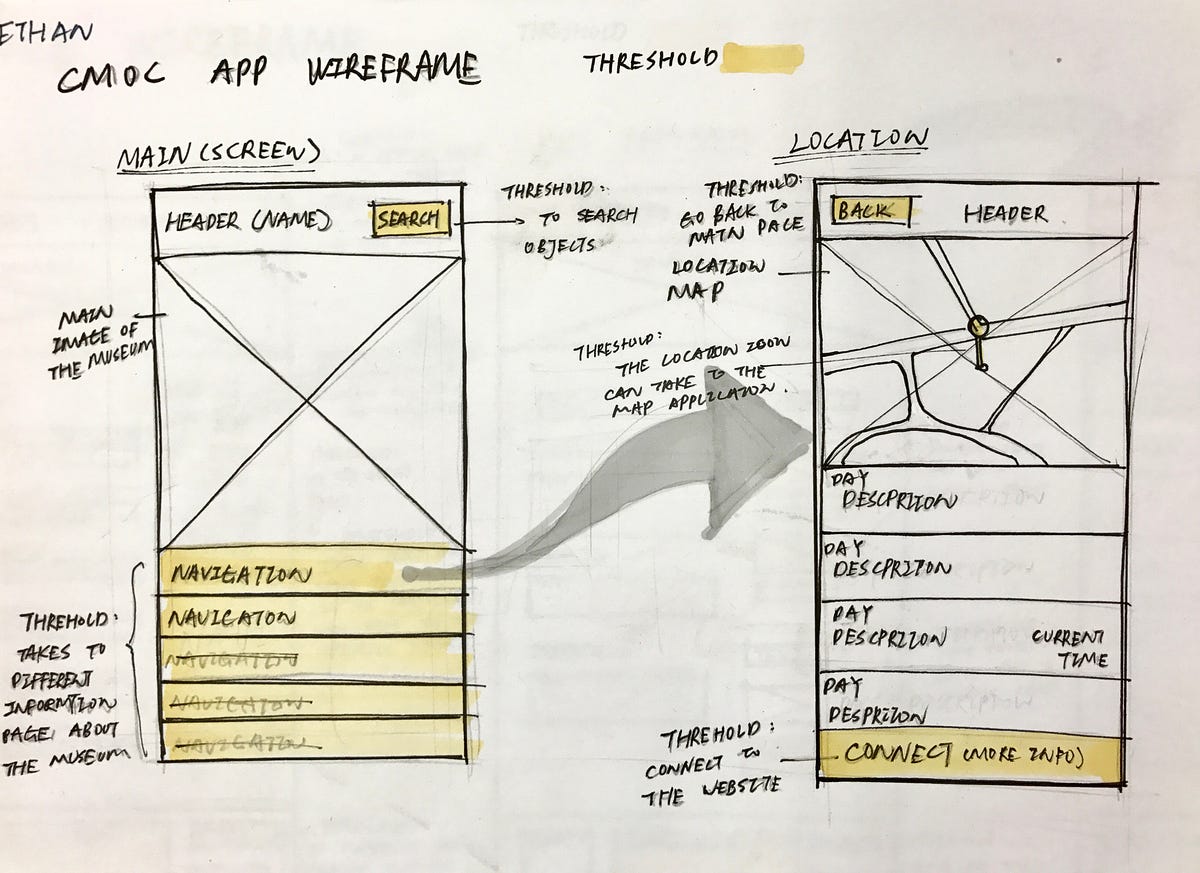 ETHAN
CMOC APP WIREFRAME
THRESHOLD
MAIN (SCREEN)
HEADER (NAME)
SEARCH
THRESHOLD:
TO SEARCH
OBJECTS
MAIN
IMAGE OF
THE MUSEUM
NAVIGATION
NAVIGATON
NAVIGATION
NAVIGATION
NAVIGATION
THREHOLD:
TAKES TO
DIFFERENT
INFORMTION
PAGE, ABOUT
THE MUSEUM
LOCATION
THRESHOLD:
GO BACK TO
MAIN PAGE
BACK
HEADER
LOCATION
MAP
THRESHOLD:
THE LOCATION ICON
CAN TAKE TO THE
MAP APPLICATION.
DAY
DESCPRITION
DAY
DESCPRITON
DAY
DESCPRIION
CURRENT
TIME
DAY
DESPRIION
CONNECT (MORE INFO)
THREHOLD:
CONNECT TO
THE WEBSITE